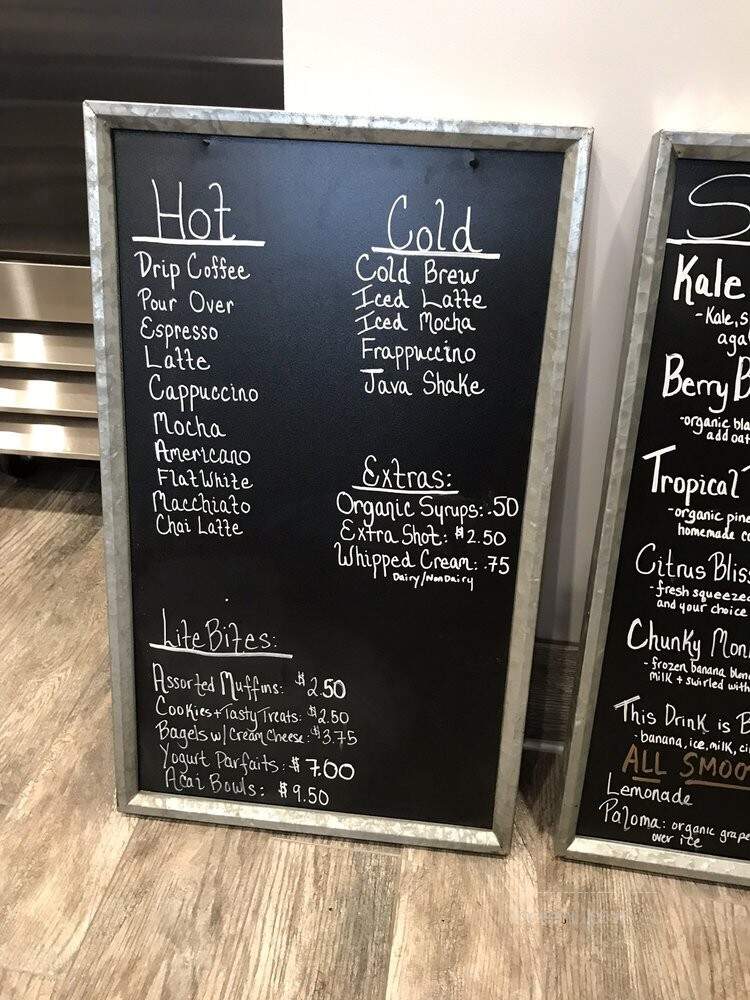 Hot
Drip Coffee
Pour Over
Espresso
Latte
Cappuccino
Mocha
Americano
Flat White
Macchiato
Chai Latte
Cold
Cold Brew
Iced Latte
Iced Mocha
Frappuccino
Java Shake
Extras:
Organic Syrups: .50
Extra Shot: $2.50
Whipped Cream: .75
Dairy/NonDairy
Lite Bites:
Assorted Muffins: $2.50
Cookies + Tasty Treats: $2.50
Bagels w/ Cream Cheese: $3.75
Yogurt Parfaits: $7.00
Açai Bowls: $9.50
S
Kale
- Kale, s
aga
Berry B
-organic bla
add oat
Tropical
-organic pine
homemade co
Citrus Bliss
-fresh squeezed
and your choice
Chunky Mon
- frozen banana blen
milk + swirled with
This Drink is B
- banana, ice, milk, ci
ALL SMOO
Lemonade
Paloma: organic grape
over ice